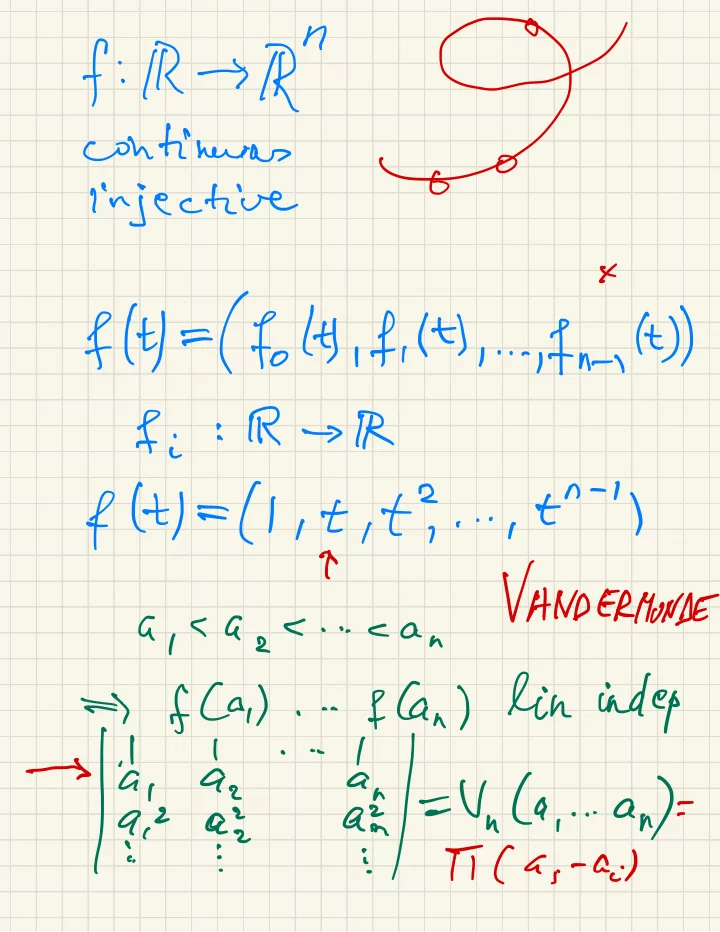 f : ℝ → ℝⁿ
continuous
injective
×
f(t) = (f₀(t), f₁(t), ..., fₙ₋₁(t))
fᵢ : ℝ → ℝ
f(t) = (1, t, t², ..., tⁿ⁻¹)
↑
VANDERMONDE
a₁ < a₂ < ... < aₙ
⇒ f(a₁) ... f(aₙ) lin indep
→ | 1 1 ... 1 |
| a₁ a₂ aₙ |
| a₁² a₂² aₙ² | = Vₙ(a₁ ... aₙ) =
| ⋮ ⋮ ⋮ | Π(aⱼ - aᵢ)